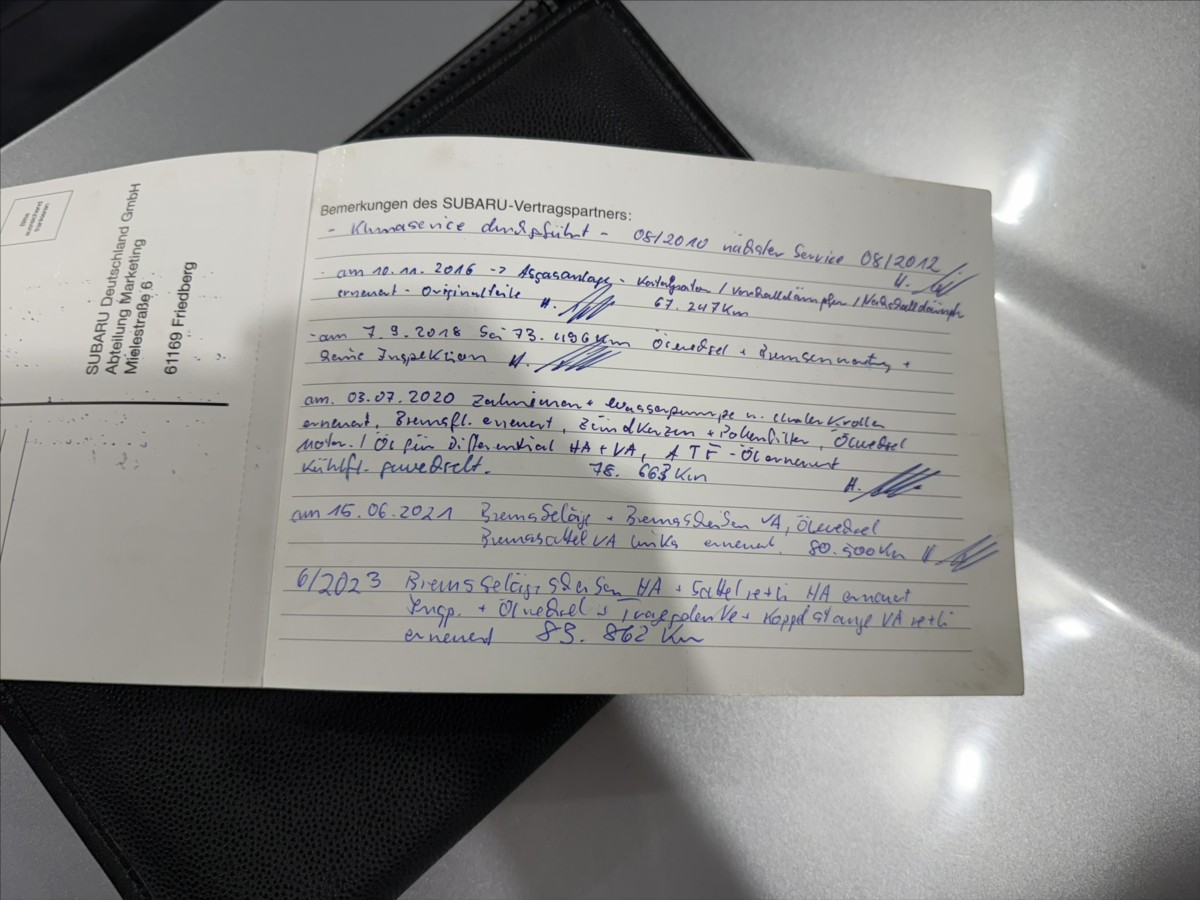 SUBARU Deutschland GmbH
Abteilung Marketing
Mielestraße 6
61169 Friedberg
Bemerkungen des SUBARU-Vertragspartners:
- Klimaservice durchgführt - 08/2010 nächster Service 08/2012
- am 10.11. 2016 -> Abgasanlage - Katalysator / Vorschalldämpfer / Nachschalldämpfer
erneuert - Originalteile 67.247 Km
- am 7.9.2018 bei 73.496 Km Ölwechsel + Bremsenwartung +
keine Inspektion
am. 03.07.2020 Zahnriemen + Wasserpumpe u. Umlenkrollen
erneuert, Bremsfl. erneuert, Zündkerzen + Pollenfilter, Ölwechsel
Motor. / Öl für Differential HA + VA, ATF - Öl erneuert
Kühlfl. gewechselt. 78. 663 Km
am 15.06.2021 Bremsbeläge + Bremsscheiben VA, Ölwechsel
Bremssattel VA links erneuert. 80.500 Km
6/2023 Bremsbeläge, Scheiben HA + Sattel re+li HA erneuert
Insp. + Ölwechsel + Traggelenke + Koppelstange VA re+li
erneuert 83. 862 Km